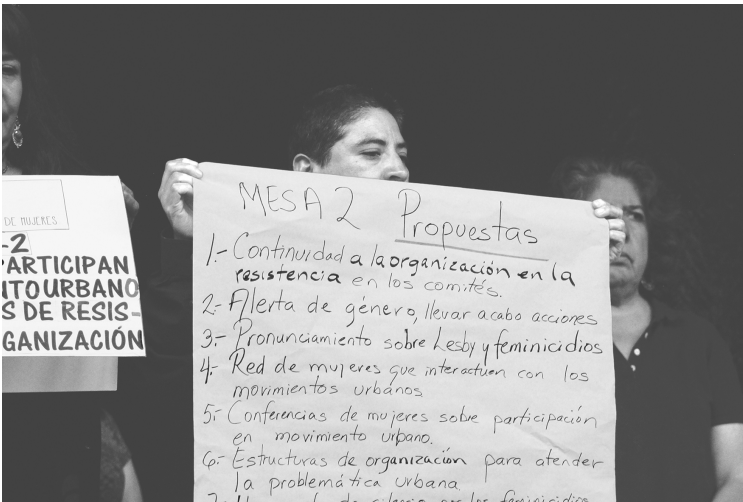 DE MUJERES
-2
PARTICIPAN
TOURBANO
S DE RESIS-
GANIZACIÓN
MESA 2 Propuestas
1.- Continuidad a la organización en la
resistencia en los comités.
2- Alerta de género, llevar acabo acciones
3.- Pronunciamiento sobre Lesby y feminicidios
4.- Red de mujeres que interactuen con los
movimientos urbanos
5.- Conferencias de mujeres sobre participación
en movimiento urbano.
6.- Estructuras de organización para atender
la problemática urbana
de silencio por los feminicidios